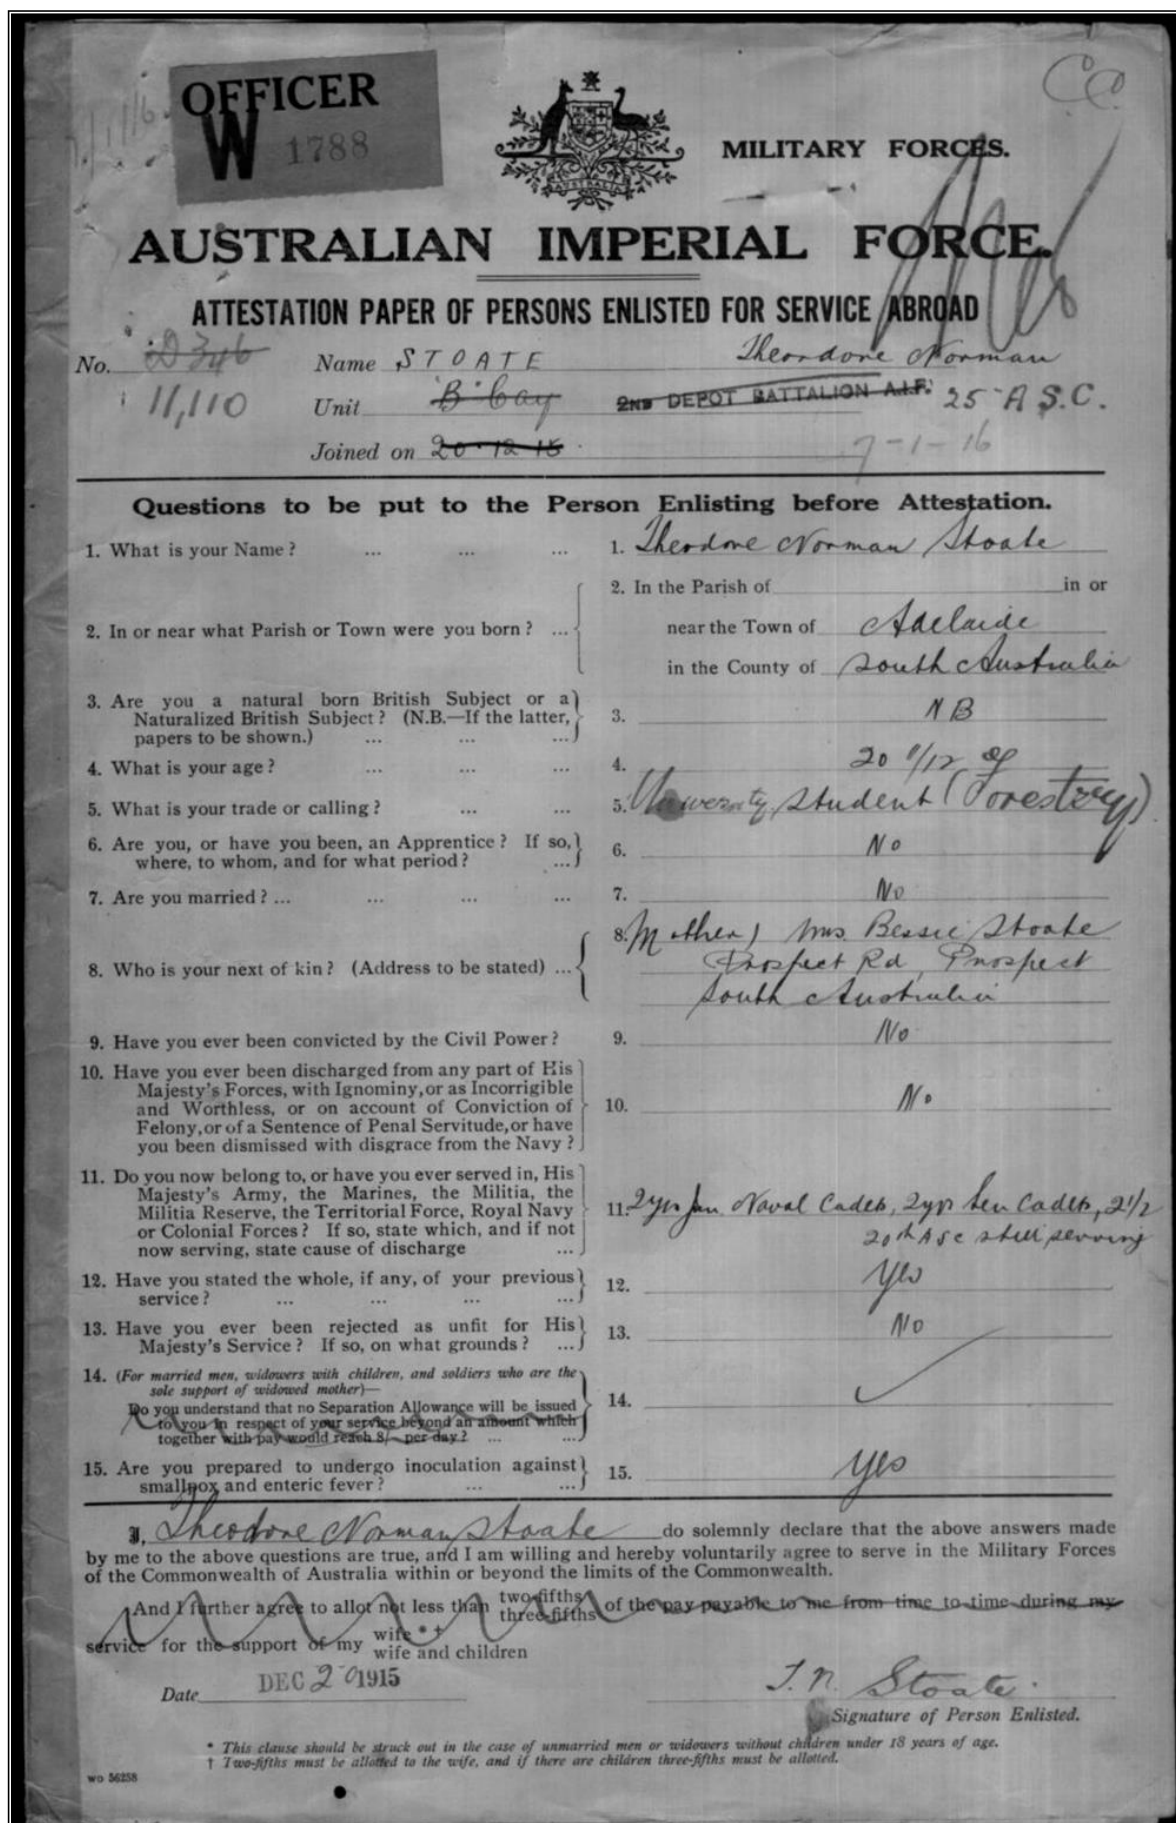 OFFICER
W 1788
AUSTRALIA
MILITARY FORCES.
AUSTRALIAN IMPERIAL FORCE.
ATTESTATION PAPER OF PERSONS ENLISTED FOR SERVICE ABROAD
No. D346 Name STOATE Theordore Norman
11,110 Unit B Coy 2ND DEPOT BATTALION A.I.F. 25 A S.C.
Joined on 20.12.15 7-1-16
Questions to be put to the Person Enlisting before Attestation.
1. What is your Name? ... ... ... 1. Theodore Norman Stoate
2. In the Parish of in or
2. In or near what Parish or Town were you born? ... near the Town of Adelaide
in the County of South Australia
3. Are you a natural born British Subject or a
Naturalized British Subject? (N.B.—If the latter, 3. N B
papers to be shown.) ... ... ...
4. What is your age? ... ... ... 4. 20
5. What is your trade or calling? ... ... 5. University Student (Forestry)
6. Are you, or have you been, an Apprentice? If so,
where, to whom, and for what period? ... 6. No
7. Are you married? ... ... ... ... 7. No
8. Mother) Mrs. Bessie Stoate
8. Who is your next of kin? (Address to be stated) ... Prospect Rd, Prospect
South Australia
9. Have you ever been convicted by the Civil Power? 9. No
10. Have you ever been discharged from any part of His
Majesty's Forces, with Ignominy, or as Incorrigible
and Worthless, or on account of Conviction of 10. No
Felony, or of a Sentence of Penal Servitude, or have
you been dismissed with disgrace from the Navy?
11. Do you now belong to, or have you ever served in, His
Majesty's Army, the Marines, the Militia, the
Militia Reserve, the Territorial Force, Royal Navy 11. 2yrs Jun. Naval Cadets, 2yrs Sen Cadets, 2 1/2
or Colonial Forces? If so, state which, and if not 20th ASC still serving
now serving, state cause of discharge ...
12. Have you stated the whole, if any, of your previous
service? ... ... ... 12. Yes
13. Have you ever been rejected as unfit for His
Majesty's Service? If so, on what grounds? ... 13. No
14. (For married men, widowers with children, and soldiers who are the
sole support of widowed mother)—
Do you understand that no Separation Allowance will be issued 14.
to you in respect of your service beyond an amount which
together with pay would reach 8/- per day? ... ...
15. Are you prepared to undergo inoculation against
smallpox and enteric fever? ... ... 15. Yes
I, Theodore Norman Stoate do solemnly declare that the above answers made
by me to the above questions are true, and I am willing and hereby voluntarily agree to serve in the Military Forces
of the Commonwealth of Australia within or beyond the limits of the Commonwealth.
And I further agree to allot not less than two-fifths three-fifths of the pay payable to me from time to time during my
service for the support of my wife * † wife and children
Date DEC 20 1915 T. N. Stoate.
Signature of Person Enlisted.
* This clause should be struck out in the case of unmarried men or widowers without children under 18 years of age.
† Two-fifths must be allotted to the wife, and if there are children three-fifths must be allotted.
WO 56258